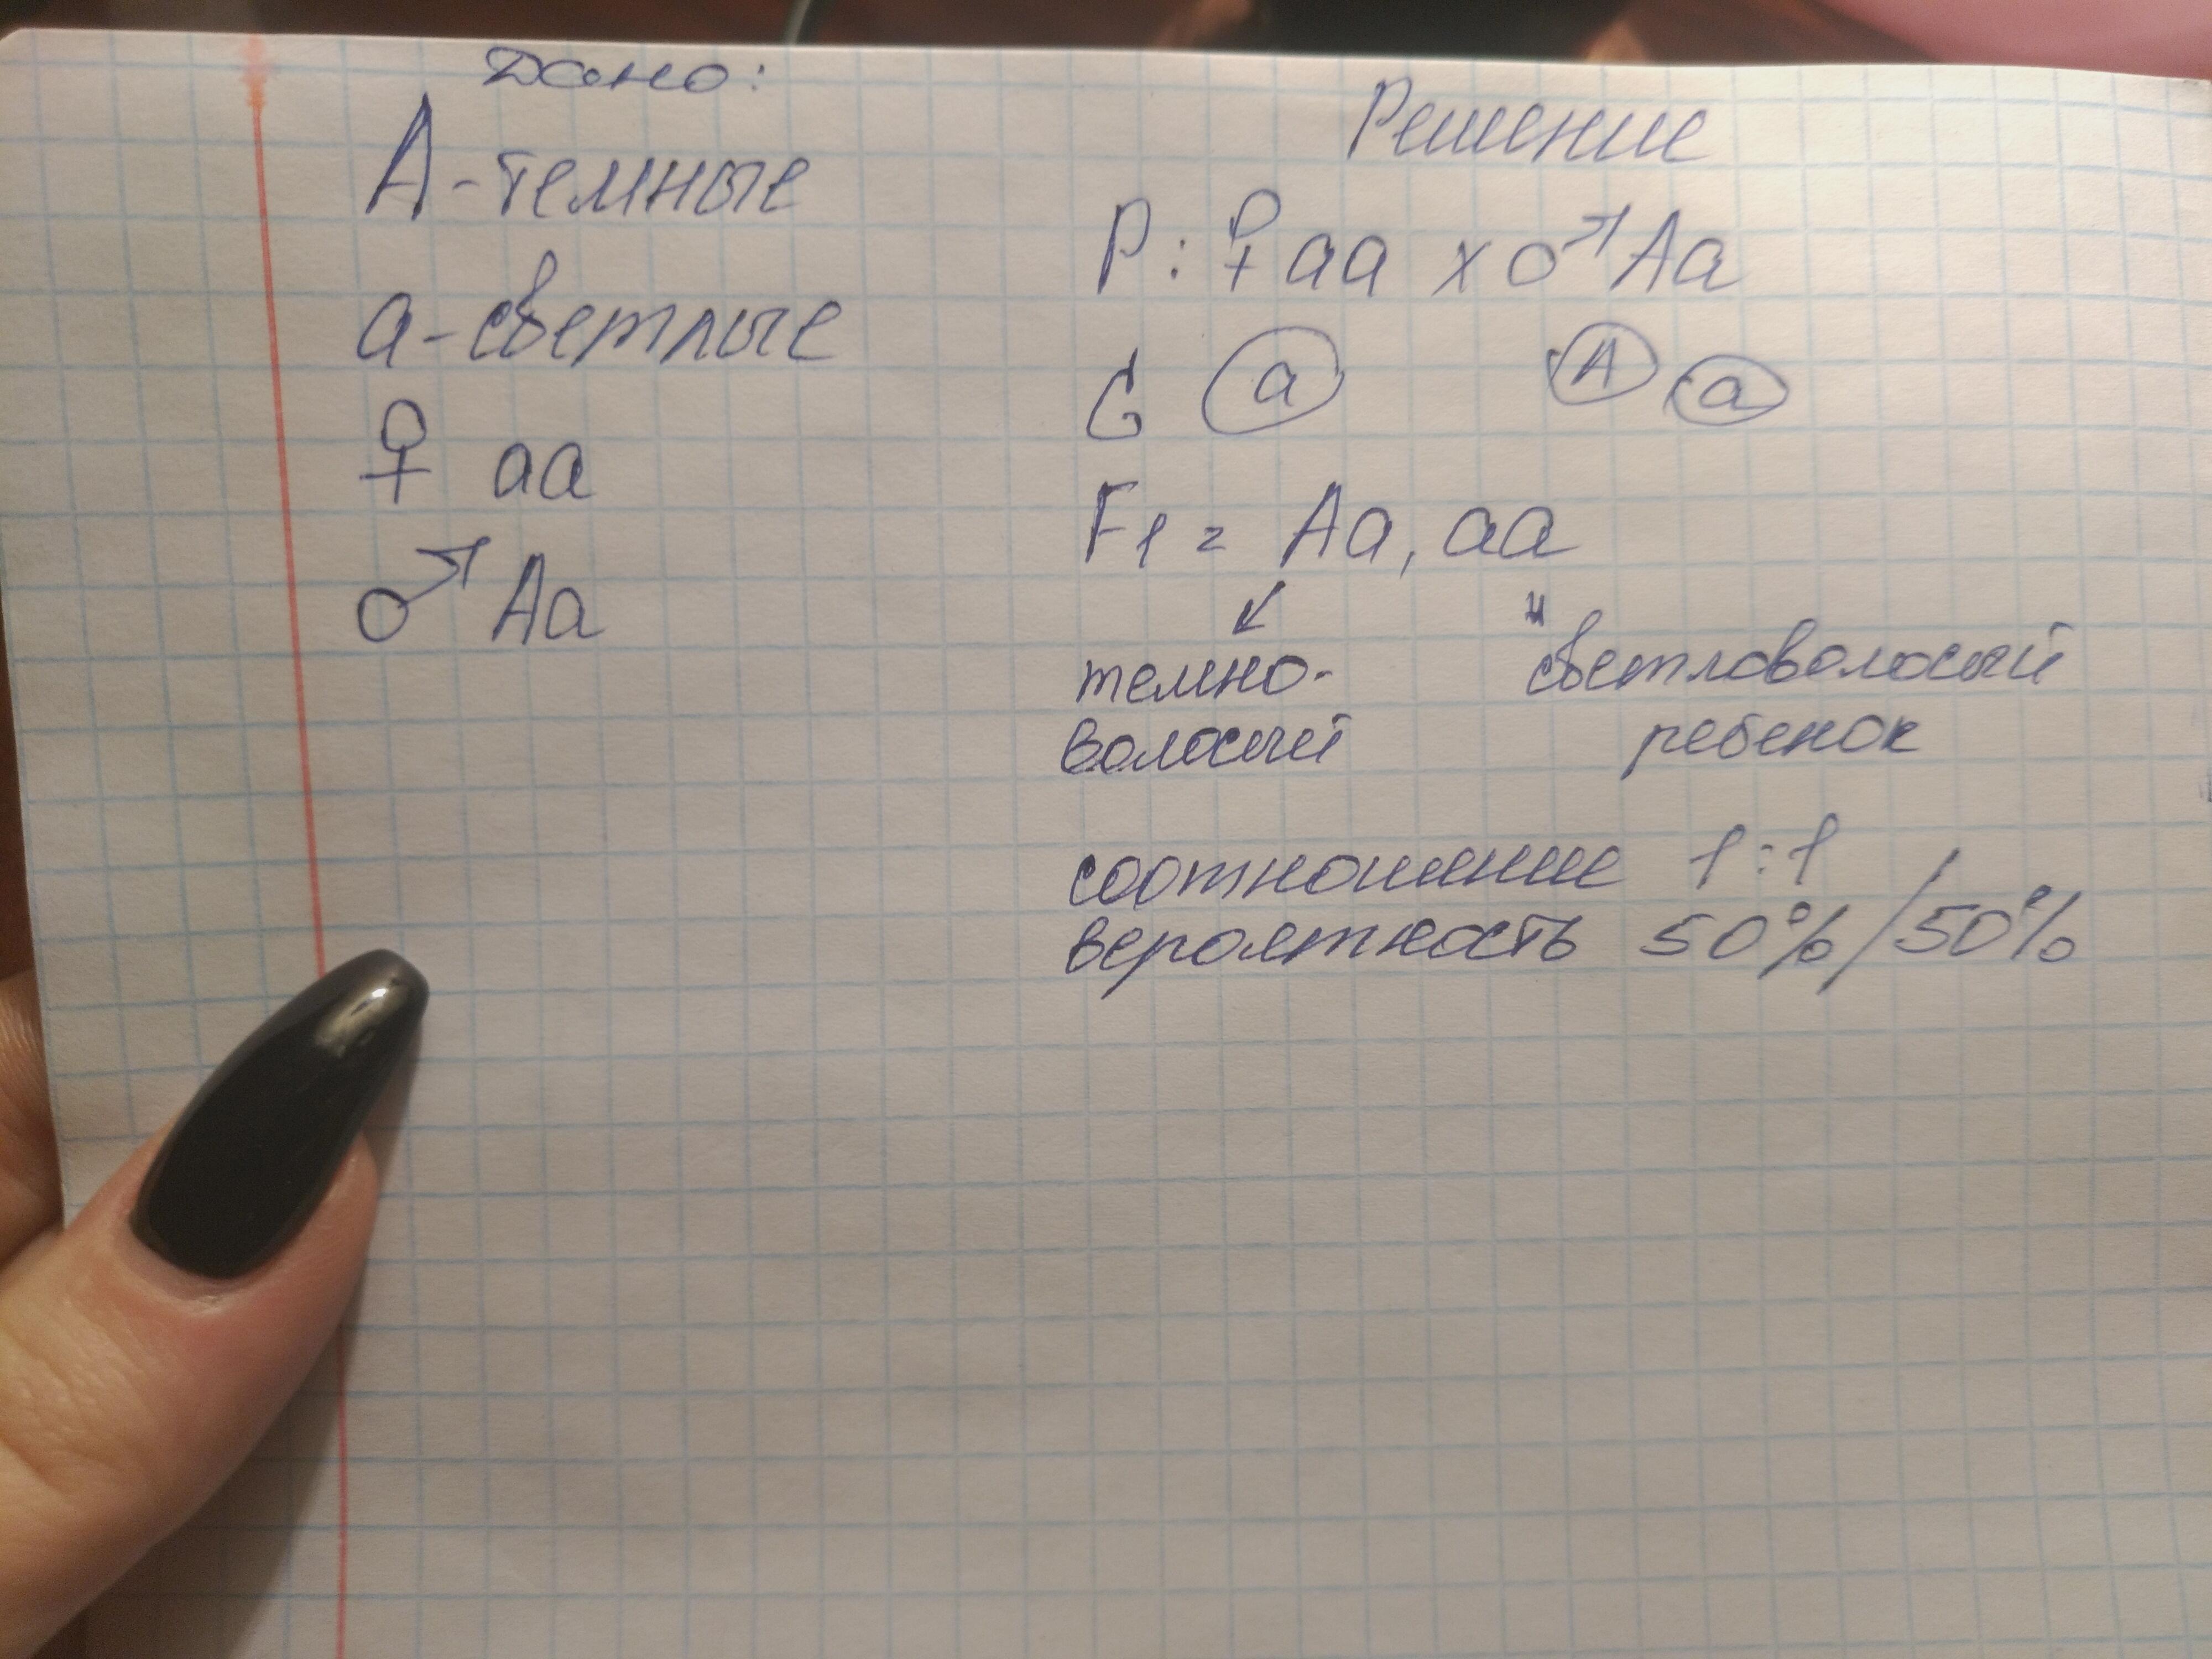 Дано:
А-темные
а-светлые
♀ аа
♂ Аа
Решение
Р: ♀ аа х ♂ Аа
G а А а
F1 = Аа, аа
↙ "
темно-
волосый
светловолосый
ребенок
соотношение 1:1
вероятность 50%/50%